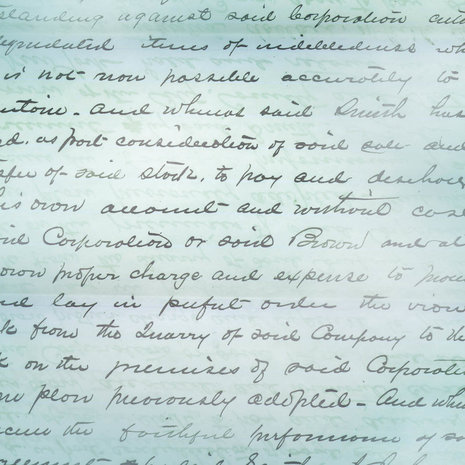 standing against said Corporation
items of indebtedness
is not now possible accurately to
And whereas said Smith has
as part consideration of said sale and
of said stock, to pay and
his own account and without cost
Corporation or said Brown and at
own proper charge and expense to
lay in perfect order the
from the Quarry of said Company to the
on the premises of said Corporation
plan previously adopted - And
the faithful performance of